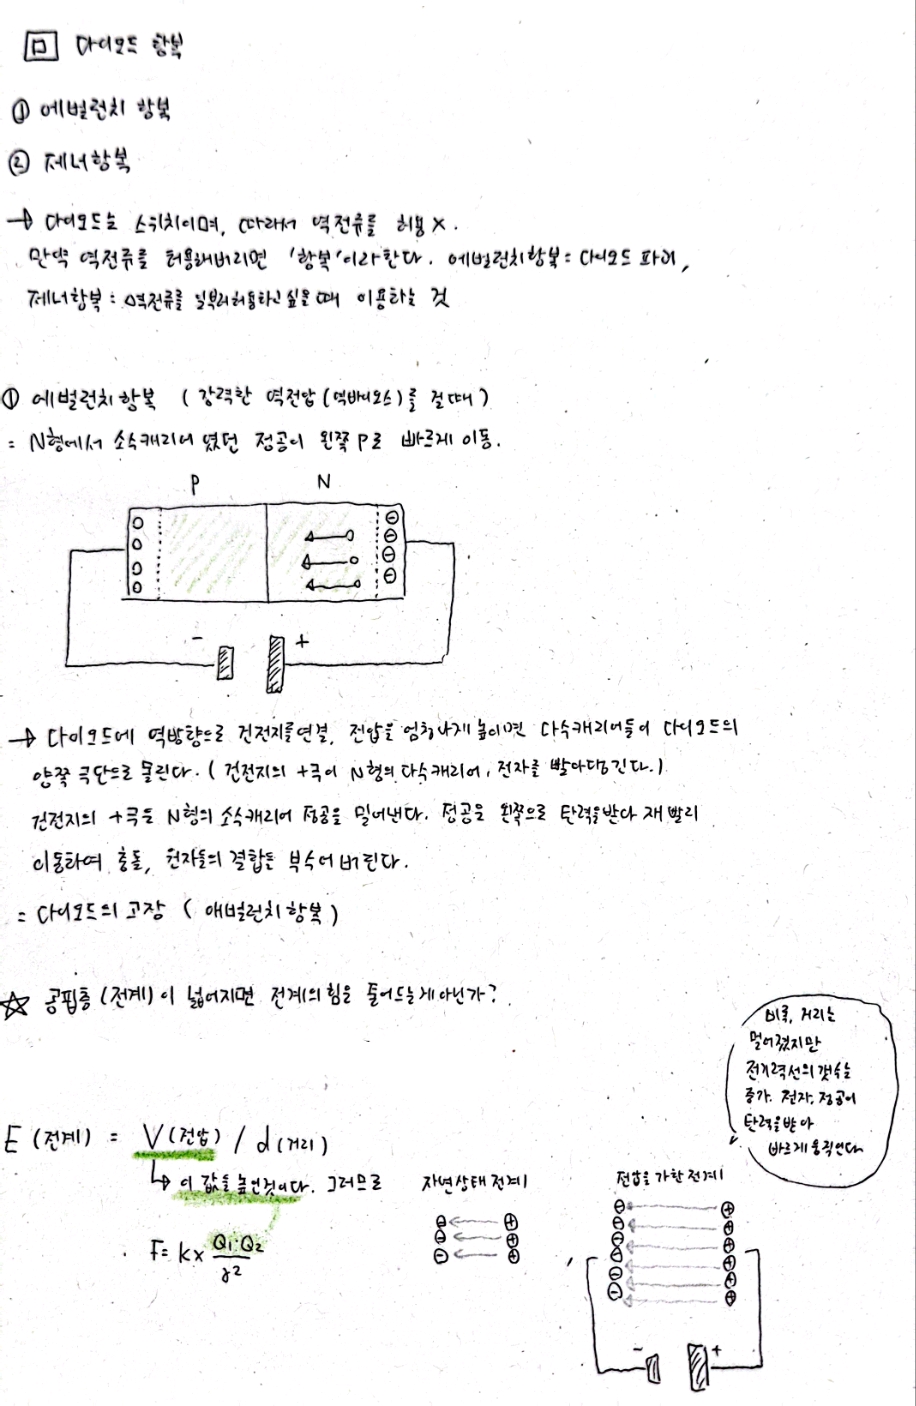 ㅁ 다이오드 항복
① 에벌런치 항복
② 제너항복
→ 다이오드는 스위치이며, 따라서 역전류를 허용 X.
만약 역전류를 허용해버리면 '항복'이라한다. 에벌런치항복 : 다이오드 파괴,
제너항복 : 역전류를 일부러허용하고 싶을 때 이용하는 것
① 에벌런치 항복 (강력한 역전압(역바이오스)를 걸때)
= N형에서 소수캐리어 였던 정공이 왼쪽 P로 빠르게 이동.
P N
- +
→ 다이오드에 역방향으로 건전지를연결, 전압을 엄청나게 높이면 다수캐리어들이 다이오드의
양쪽 극단으로 몰린다. (건전지의 +극이 N형의 다수캐리어, 전자를 빨아당긴다.)
건전지의 +극은 N형의 소수캐리어 정공을 밀어낸다. 정공은 왼쪽으로 탄력을받아 재빨리
이동하여 충돌, 원자들의 결합은 부숴버린다.
= 다이오드의 고장 (애벌런치항복)
☆ 공핍층(전계)이 넓어지면 전계의 힘은 줄어드는게아닌가?
비록, 거리는
멀어졌지만
전기력선의 갯수는
증가. 전자, 정공이
탄력을받아
빠르게움직인다
E (전계) = V(전압) / d(거리)
↳ 이 값을 높인것이다. 그러므로
자연상태 전계
전압을 가한 전계
F = k × Q₁·Q₂ / r²
- +